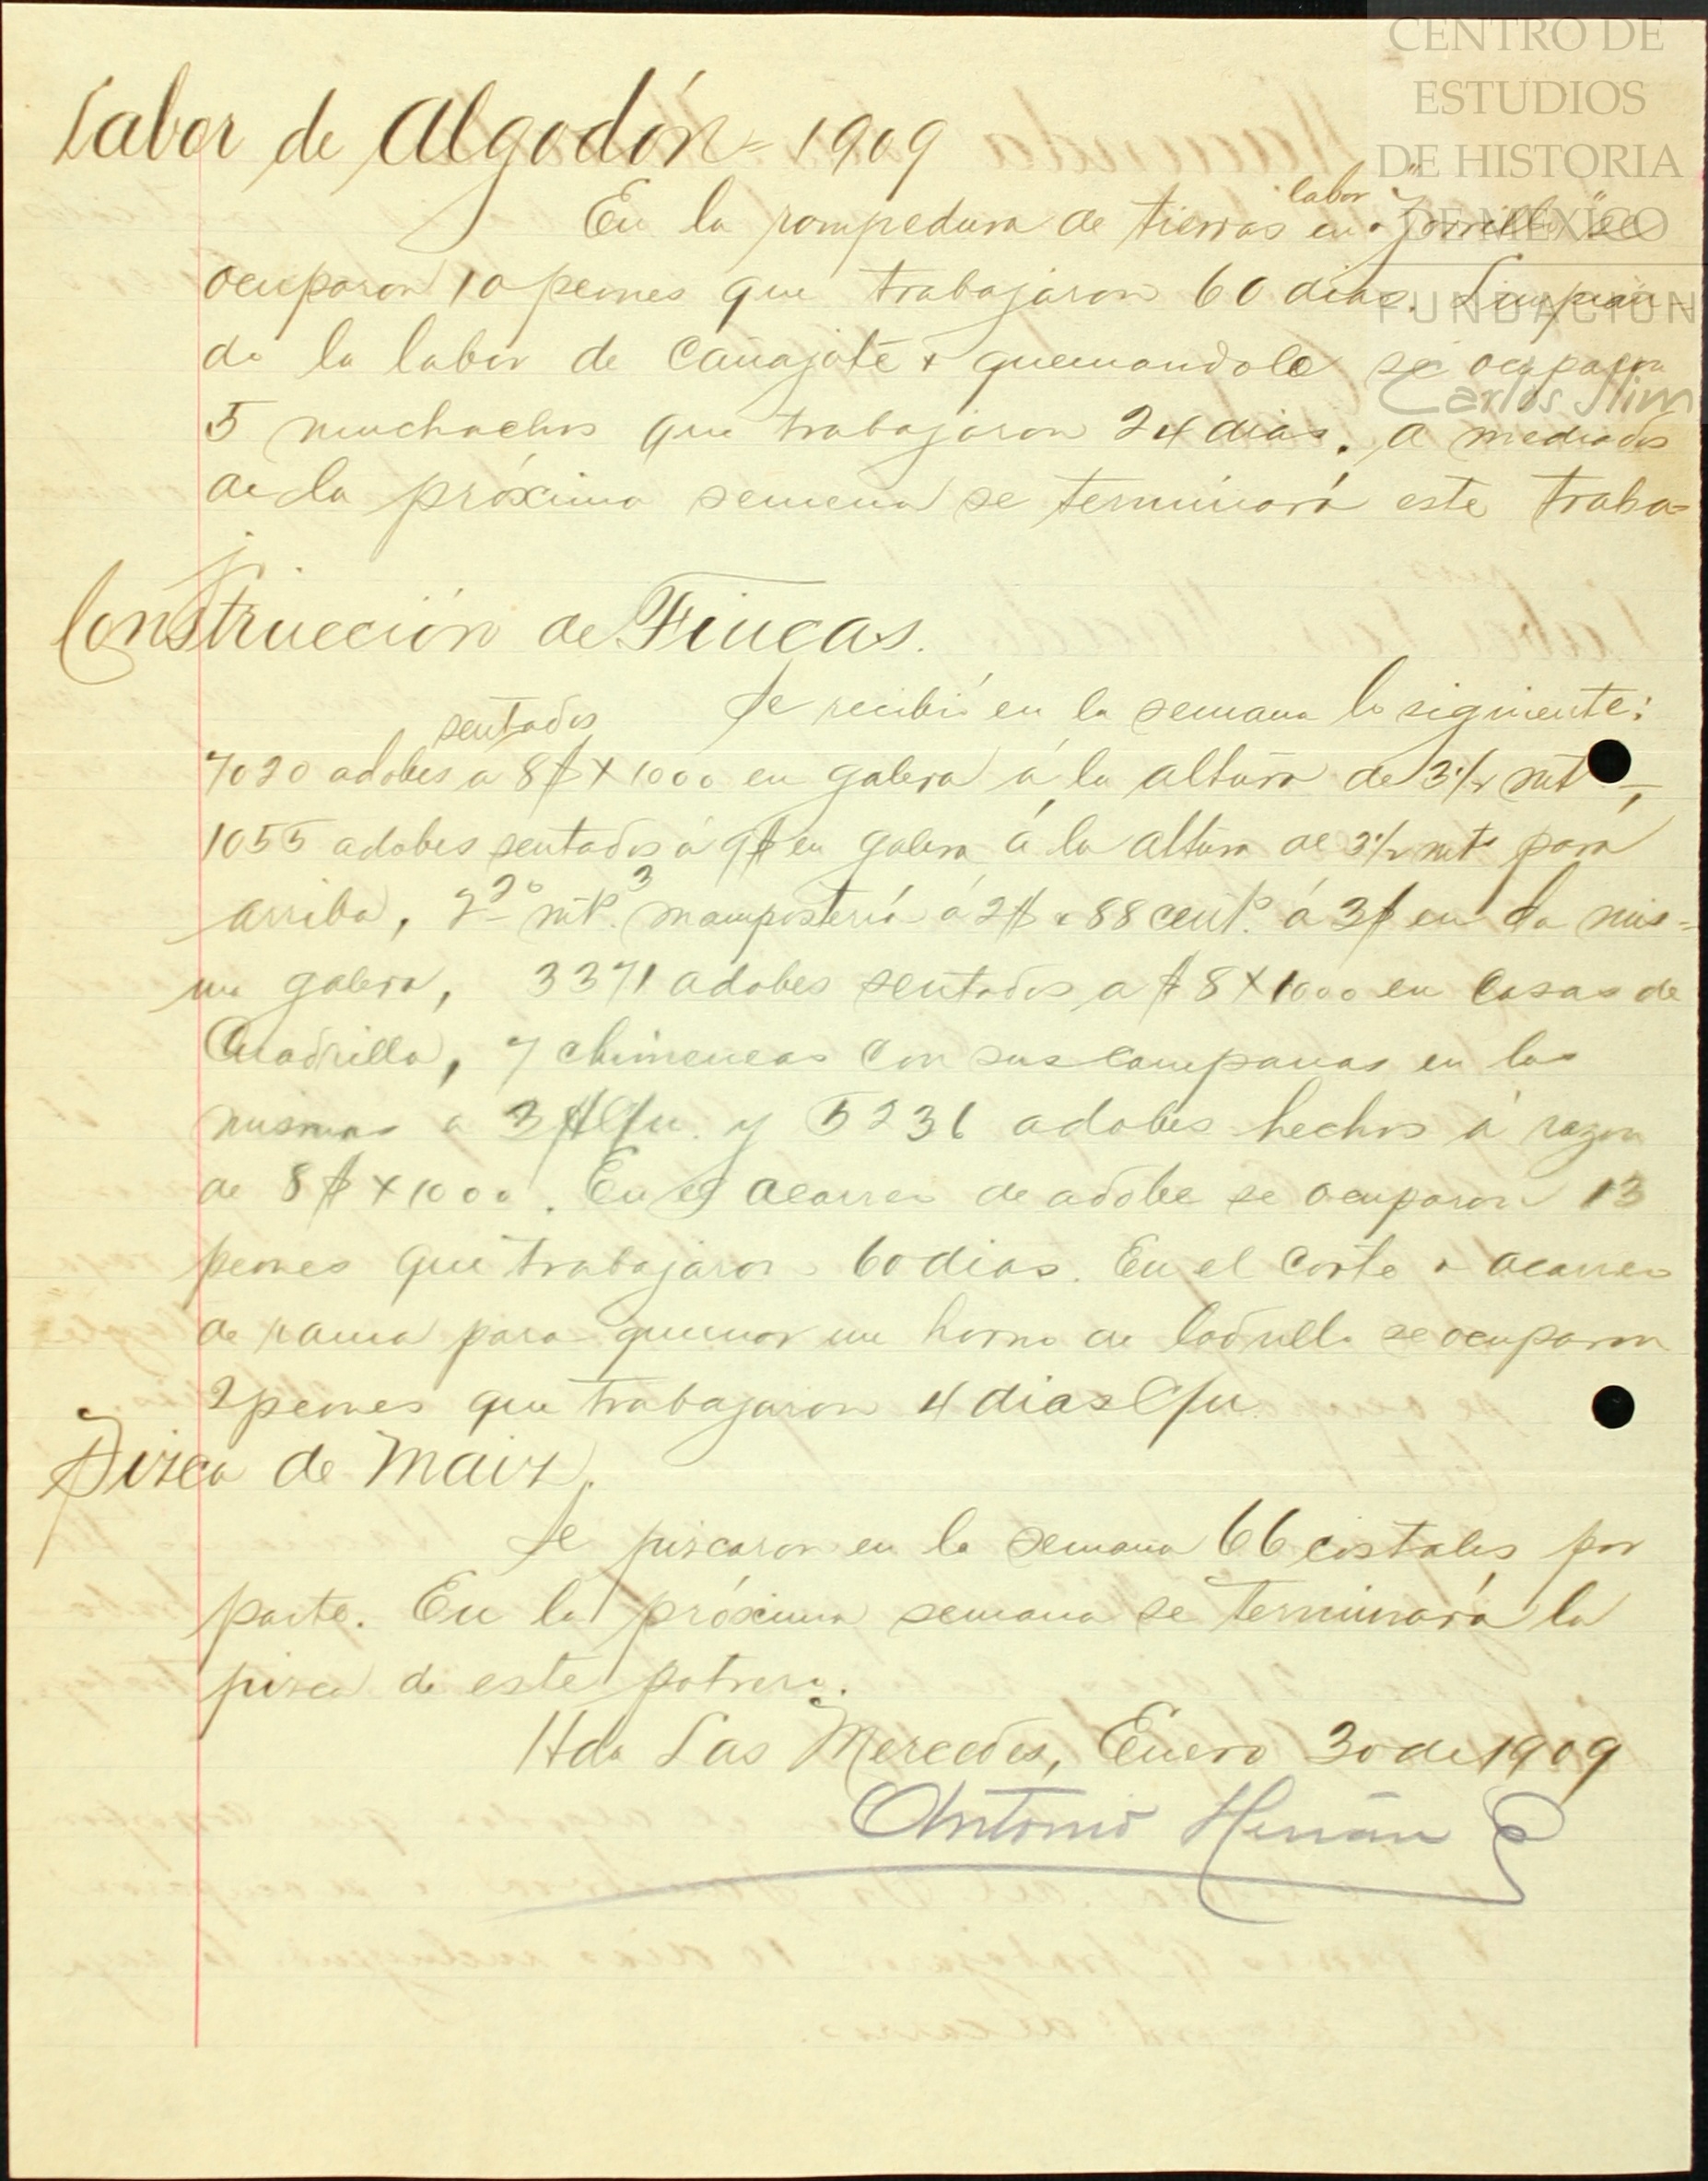 CENTRO DE
ESTUDIOS
DE HISTORIA
DE MÉXICO
FUNDACIÓN
Carlos Slim
Labor de Algodón - 1909
En la rompedura de tierras en labor "Jorrillo" se
ocuparon 10 peones que trabajaron 60 dias. Limpian-
do la labor de cañajote & quemandolo se ocuparon
5 muchachos que trabajaron 24 dias. A mediados
de la próxima semena se terminará este traba-
jo.
Construcción de Fincas.
Se recibió en la semana lo siguiente:
7020 adobes sentados a 8$ X 1000 en galera á la altura de 3½ mt
1055 adobes sentados á 9$ en galera á la altura de 3½ mts para
arriba, mts 3 mamposteria á 2$ & 88 cent. á 3$ en la mis-
ma galera, 3371 adobes sentados a $8 X 1000 en Casas de
Cuadrilla, 7 chimeneas con sus campanas en las
mismas a 3$ c/u. y 5236 adobes hechos á razon
de 8$ X 1000. En el acarreo de adobe se ocuparon 13
peones que trabajaron 60 dias. En el corte & acarreo
de rama para quemar un horno de ladrillo se ocuparon
2 peones que trabajaron 4 dias c/u
Pizca de Maiz.
Se piscaron en la semana 66 costales por
parte. En la próxima semana se terminará la
pizca de este potrero.
Hda Las Mercedes, Enero 30 de 1909
Antonio